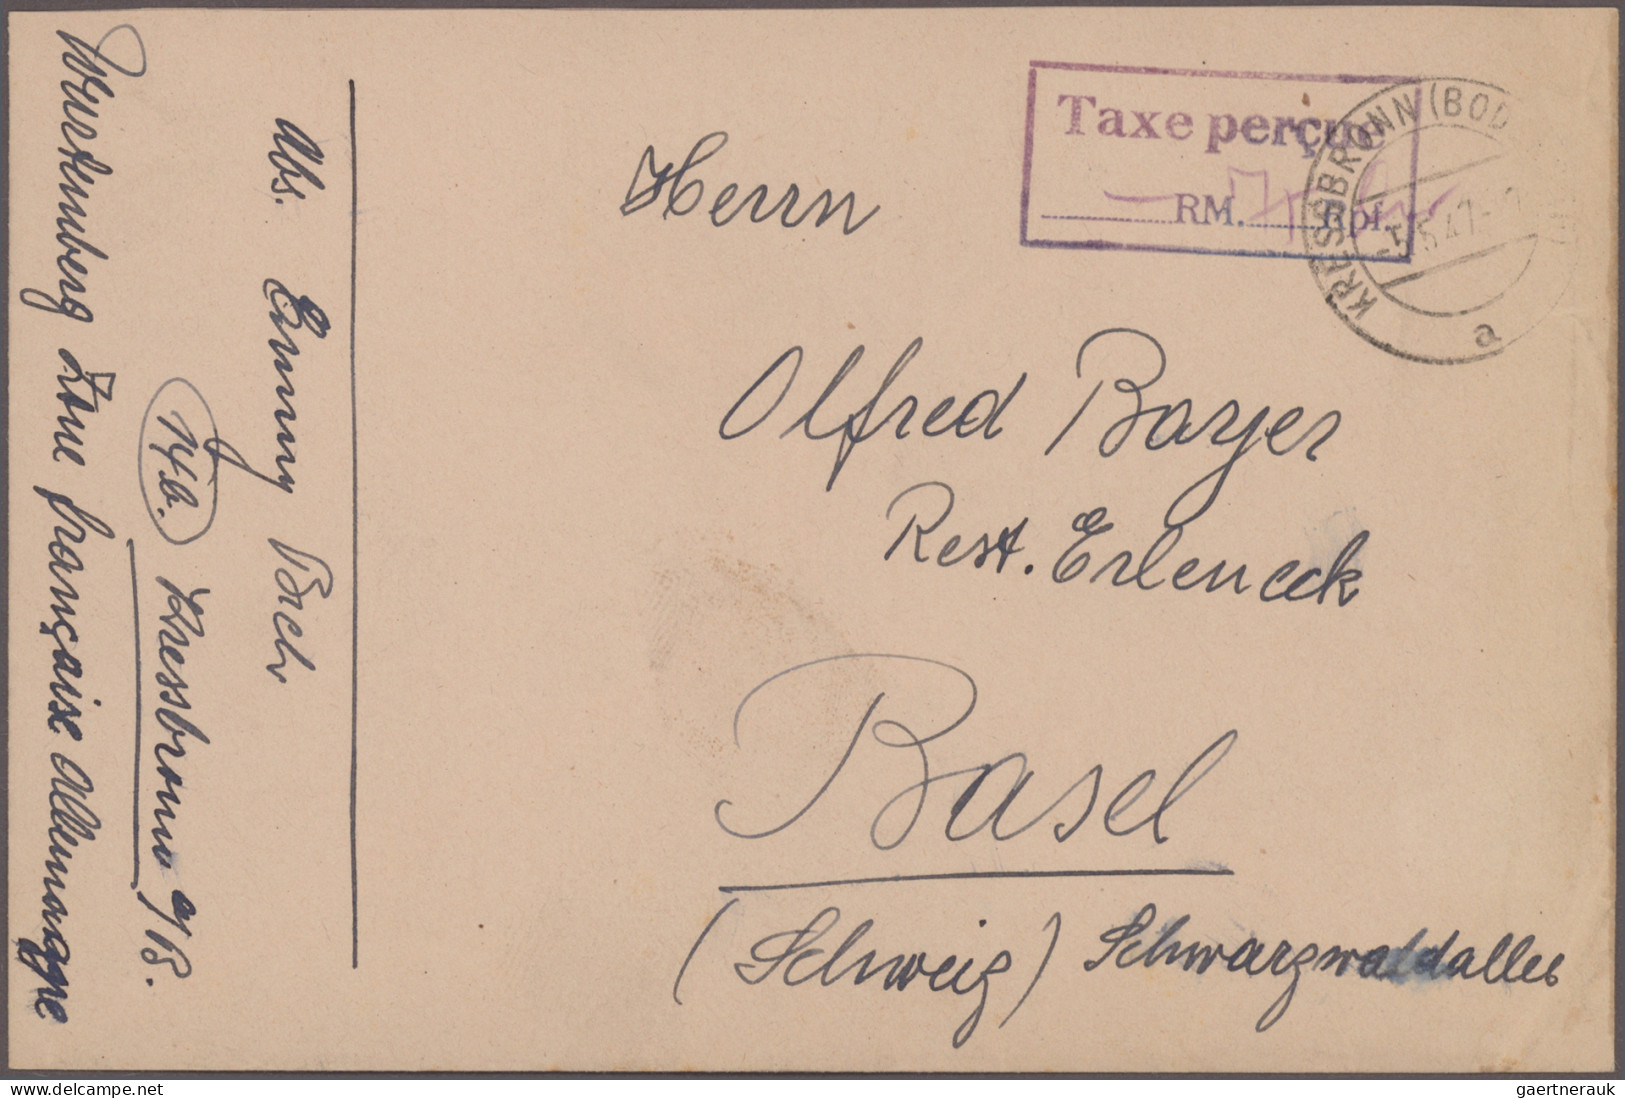 Taxe perçue
RM. Rpf.
KRESSBRONN (BOD
-5.5.47.-
a
Herrn
Alfred Bayer
Rest. Erleneck
Basel
(Schweiz) Schwarzwaldallee
Abs. Emmy Bach
14b. Kressbronn a/B.
Württemberg Zone française Allemagne
www.delcampe.net
gaertnerauk